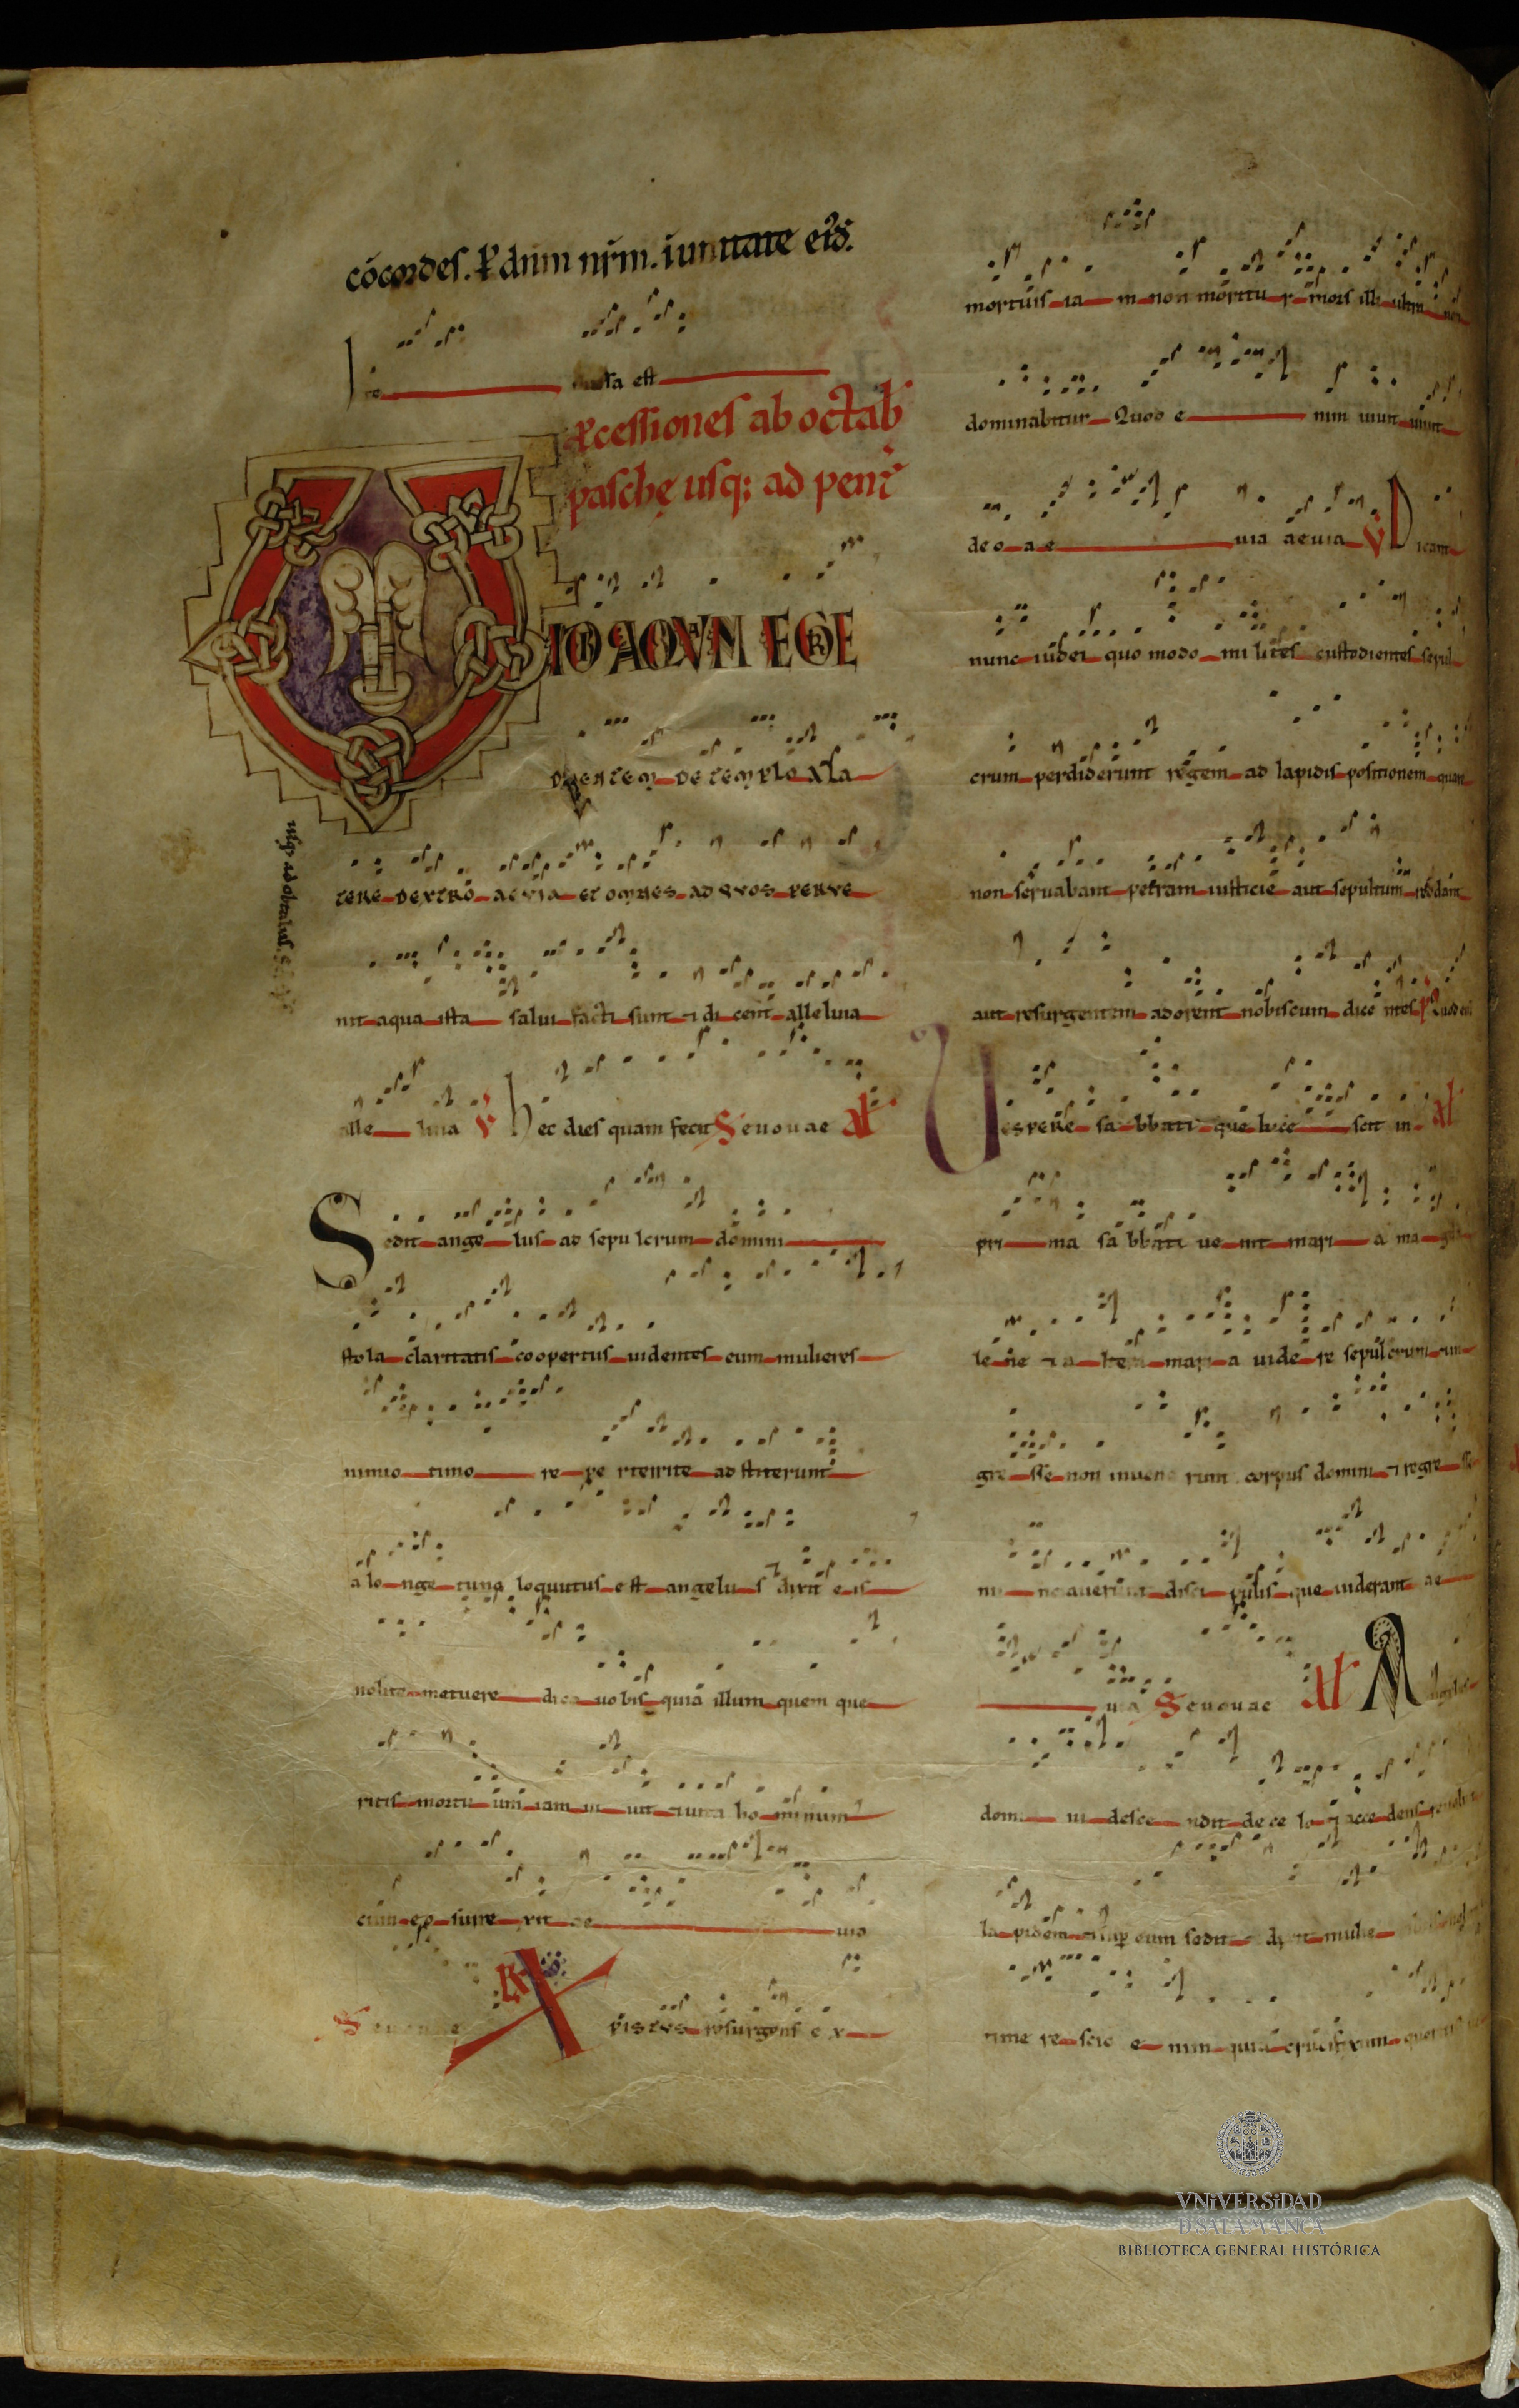 cócordes. P dnm nrm. in unitate eiđ.
missa est
Pcessiones ab octab
pasche usq; ad pent
VIDI AQVAM EGRE
DIENTEM DE TEMPLO A lA
TERE DEXTRO AEVIA ET OMNES AD QVOS PERVE
nit aqua ista salui facti sunt 7 di cent alleluia
alle luia V hec dies quam fecit Seuouae Al
Sedit ange lus ad sepu lcrum domini
stola claritatis coopertus uidentes eum mulieres
nimio timo re pe rterrite ad stiterunt
a lo nge tunc loquutus est angelu s 7 dixit e is
nolite metuere dico uobis quia illum quem que
ritis mortu um iam ui uit 7 uita ho minum
cum eo surre xit ae uia
Seuouae
RX pistvs resurgens e x
mortuis ia m non moritu r mors illi ultra non
dominabitur Quod e nim uiuit uiuit
deo a e uia aeuia V Dicant
nunc iudei quo modo mi lites custodientes sepul
crum perdiderunt regem ad lapidis positionem quare
non seruabant petram iusticie aut sepultum reddant
aut resurgentem adorent nobiscum dice ntes P Quod eni
Vespere sa bbati que luce scit in Al
pri ma sa bbati ue nit mari a ma gda
le ne 7 a ltera mari a uide re sepulcrum in
gre sse non inuene runt corpus domini 7 regre sse
nu ncauerunt disci pulis que uiderant ae
uia Seuouae Al Angelus
domi ni desce ndit de ce lo 7 acce dens reuoluit
la pidem 7 sup eum sedit 7 dixit mulie
time re scio e nim quia crucifixum queritis
usq; ad obtabas
VNiVERSiDAD
D SALAMANCA
BIBLIOTECA GENERAL HISTÓRICA